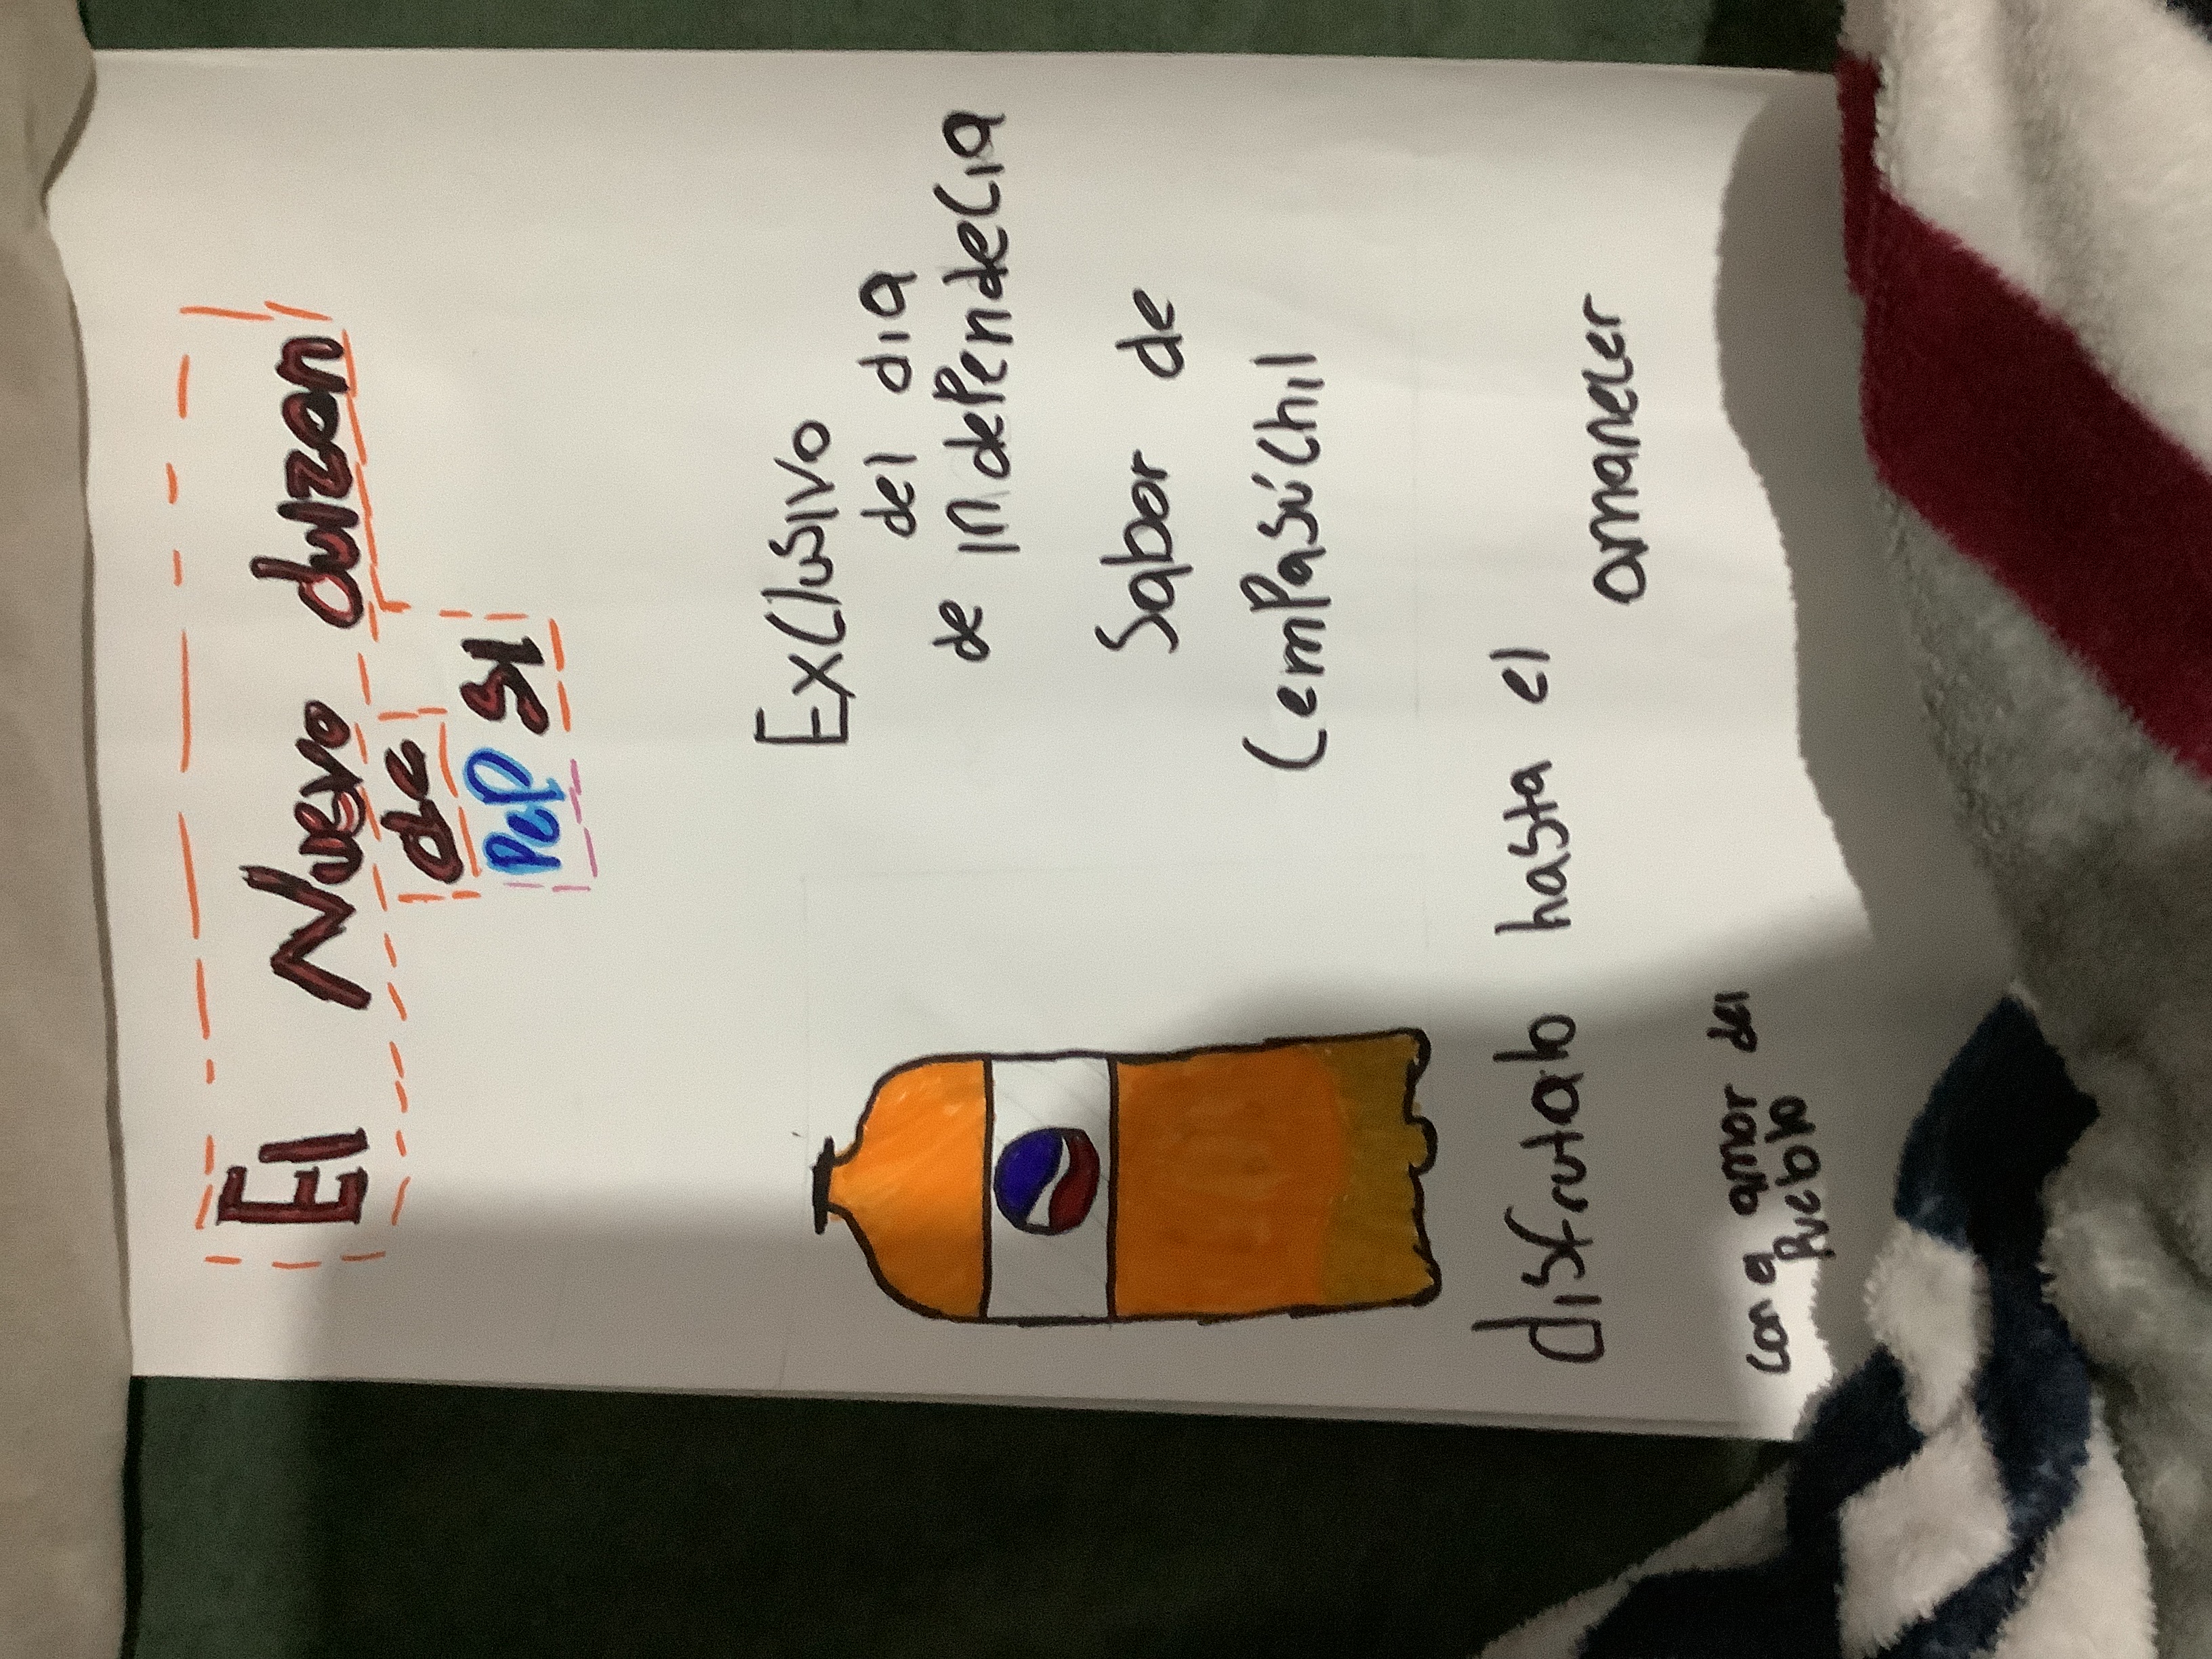 El Nuevo dulzon
de
PePSI
Exclusivo
del dia
de independecia
Sabor de
CemPasúchil
disfrutalo hasta el amanecer
con a amor del
Pueblo